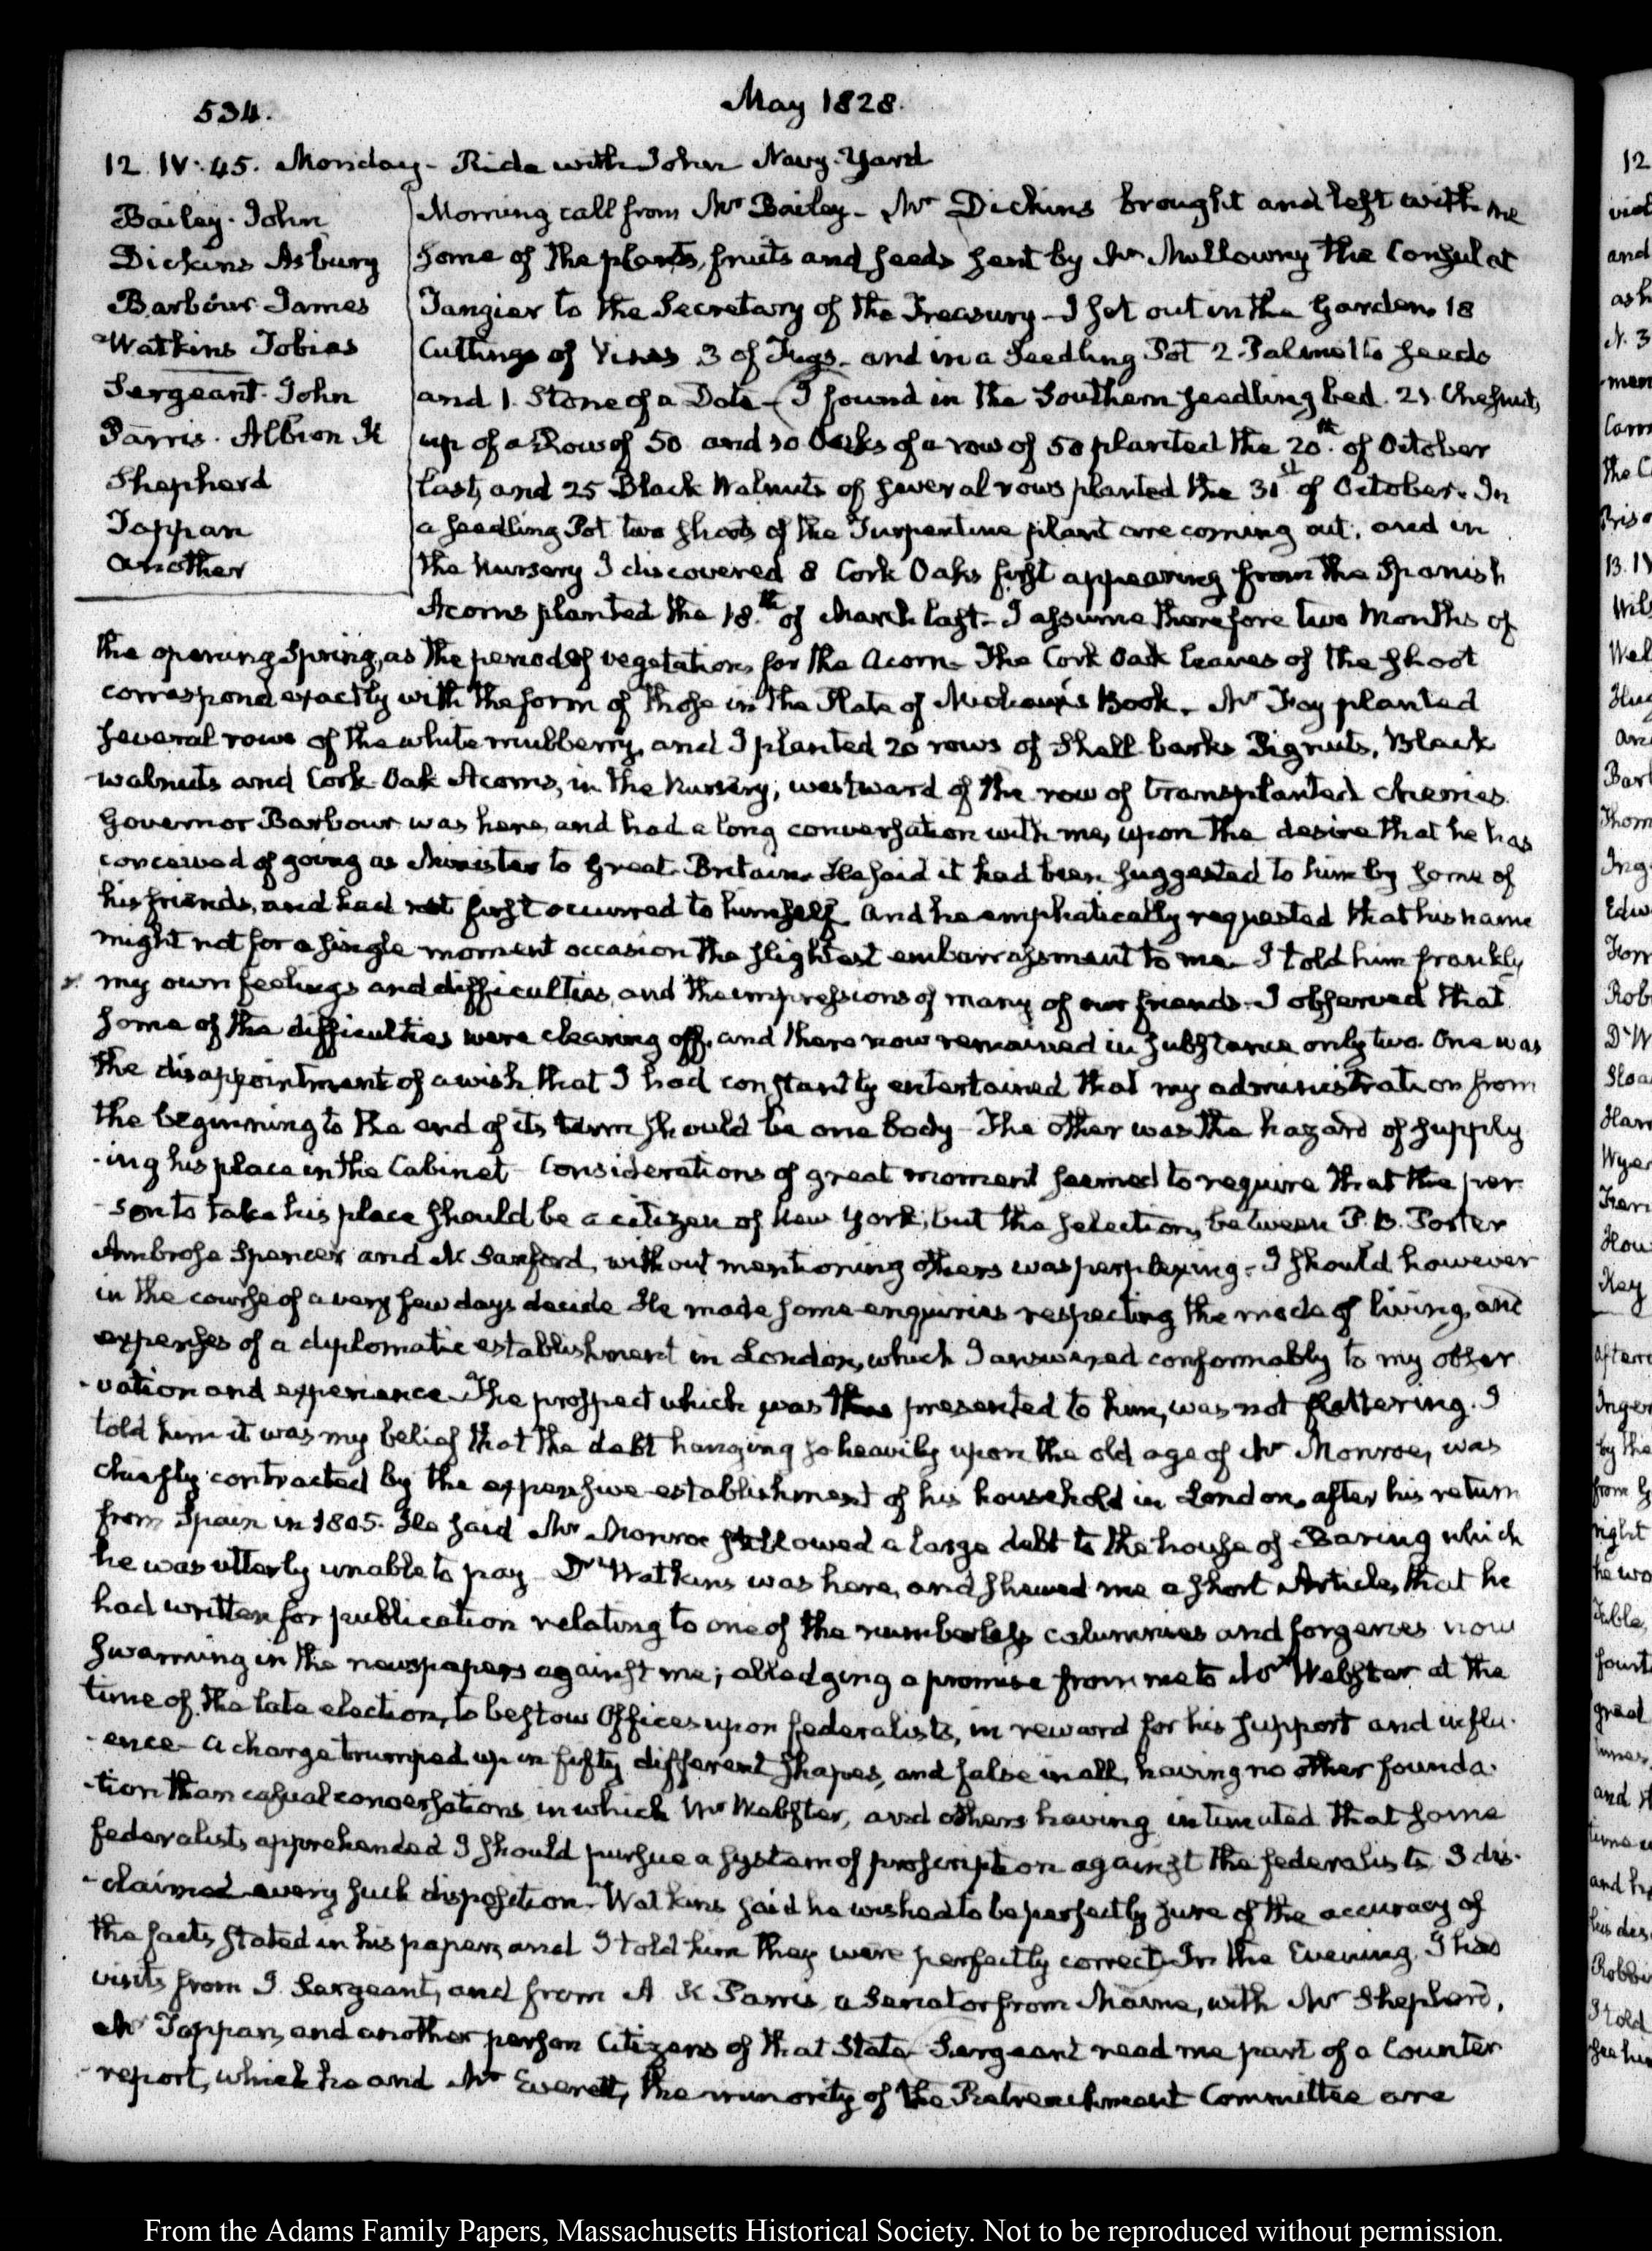 534.
May 1828.
12. IV:45. Monday - Ride with John Navy-Yard
Bailey. John
Dickins Asbury
Barbour James
Watkins Tobias
Sergeant. John
Parris. Albion K
Shepherd
Tappan
another
Morning call from Mr Bailey - Mr Dickins brought and left with me
some of the plants, fruits and seeds sent by Mr Mullowny the Consul at
Tangier to the Secretary of the Treasury - I set out in the Garden 18
Cuttings of Vines 3 of Figs - and in a Seedling Pot 2 Palmetto seeds
and 1. Stone of a Date - I found in the Southern seedling bed. 21. Chesnuts
up of a Row of 50 and 10 Oaks of a row of 50 planted the 20th. of October
last, and 25 Black Walnuts of several rows planted the 31st of October. In
a seedling Pot two shoots of the Turpentine plant are coming out, and in
the Nursery I discovered 8 Cork Oaks first appearing from the Spanish
Acorns planted the 18.th of March last - I assume therefore two Months of
the opening Spring, as the period of vegetation for the Acorn - The Cork Oak leaves of the shoot
correspond exactly with the form of those in the Plate of Michaux's Book. Mr Foy planted
several rows of the white mulberry, and I planted 20 rows of Shell barks Pignuts, Black
walnuts and Cork-Oak Acorns, in the Nursery, westward of the row of transplanted cherries.
Governor Barbour was here, and had a long conversation with me, upon the desire that he has
conceived of going as Minister to Great-Britain - He said it had been suggested to him by some of
his friends, and had not first occurred to himself. And he emphatically requested that his name
might not for a single moment occasion the slightest embarrassment to me - I told him frankly
my own feelings and difficulties, and the impressions of many of our friends - I observed that
some of the difficulties were clearing off, and there now remained in substance only two. One was
the disappointment of a wish that I had constantly entertained that my administration from
the beginning to the end of its term should be one body - The other was the hazard of supply
-ing his place in the Cabinet - Considerations of great moment seemed to require that the per
-son to take his place should be a citizen of New York; but the selection, between P. B. Porter
Ambrose Spencer and N. Sanford, without mentioning others was perplexing - I should however
in the course of a very few days decide He made some enquiries respecting the mode of living, and
expenses of a diplomatic establishment in London, which I answered conformably to my obser
-vation and experience - The prospect which was thus presented to him, was not flattering. I
told him it was my belief that the debt hanging so heavily upon the old age of Mr Monroe, was
chiefly contracted by the expensive establishment of his household in London, after his return
from Spain in 1805. He said Mr Monroe still owed a large debt to the house of Baring which
he was utterly unable to pay - Dr Watkins was here, and shewed me a short Article, that he
had written for publication relating to one of the numberless calumnies and forgeries now
swarming in the newspapers against me; alledging a promise from me to Mr Webster at the
time of the late election, to bestow Offices upon federalists, in reward for his support and influ-
-ence - A charge trumped up in fifty different shapes, and false in all, having no other founda-
-tion than casual conversations in which Mr Webster, and others having intimated that some
federalists apprehended I should pursue a system of proscription against the federalists I dis-
-claimed every such disposition - Watkins said he wished to be perfectly sure of the accuracy of
the facts stated in his paper, and I told him they were perfectly correct - In the Evening. I had
visits from J. Sergeant, and from A K Parris, a Senator from Maine, with Mr Shepherd,
Mr Tappan, and another person Citizens of that State - Sergeant read me part of a Counter
-report, which he and Mr Everett, the minority of the Retrenchment Committee are
From the Adams Family Papers, Massachusetts Historical Society. Not to be reproduced without permission.